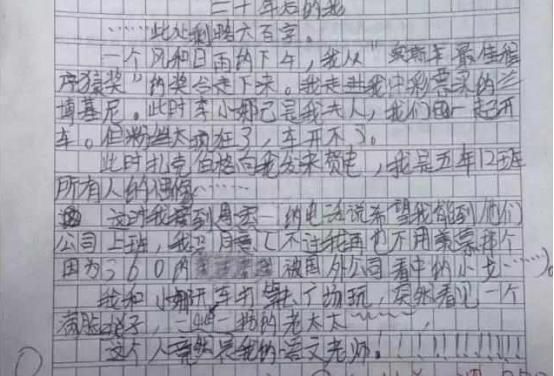 三十年后的我
……此处删略六百字。
一个风和日雨的下午，我从"奥斯卡最佳程
序猿奖"的奖台走下来。我走进我中彩票买的兰
博基尼。此时李小娜已是我夫人，我们一起开
车。但粉丝太疯狂了，车开不了。
此时扎克伯格向我发来贺电，我是五年12班
所有人的偶像……
这时我接到周云一的电话说希望我能到他们
公司上班，我同意了不过我再也不用羡慕那个
因为360的 被国外公司看中的小戈……
我和小娜开车去 玩，突然看见一个
满脸 子，二 的老太太
这个人竟然是我的语文老师！！！！！！！！！！！！